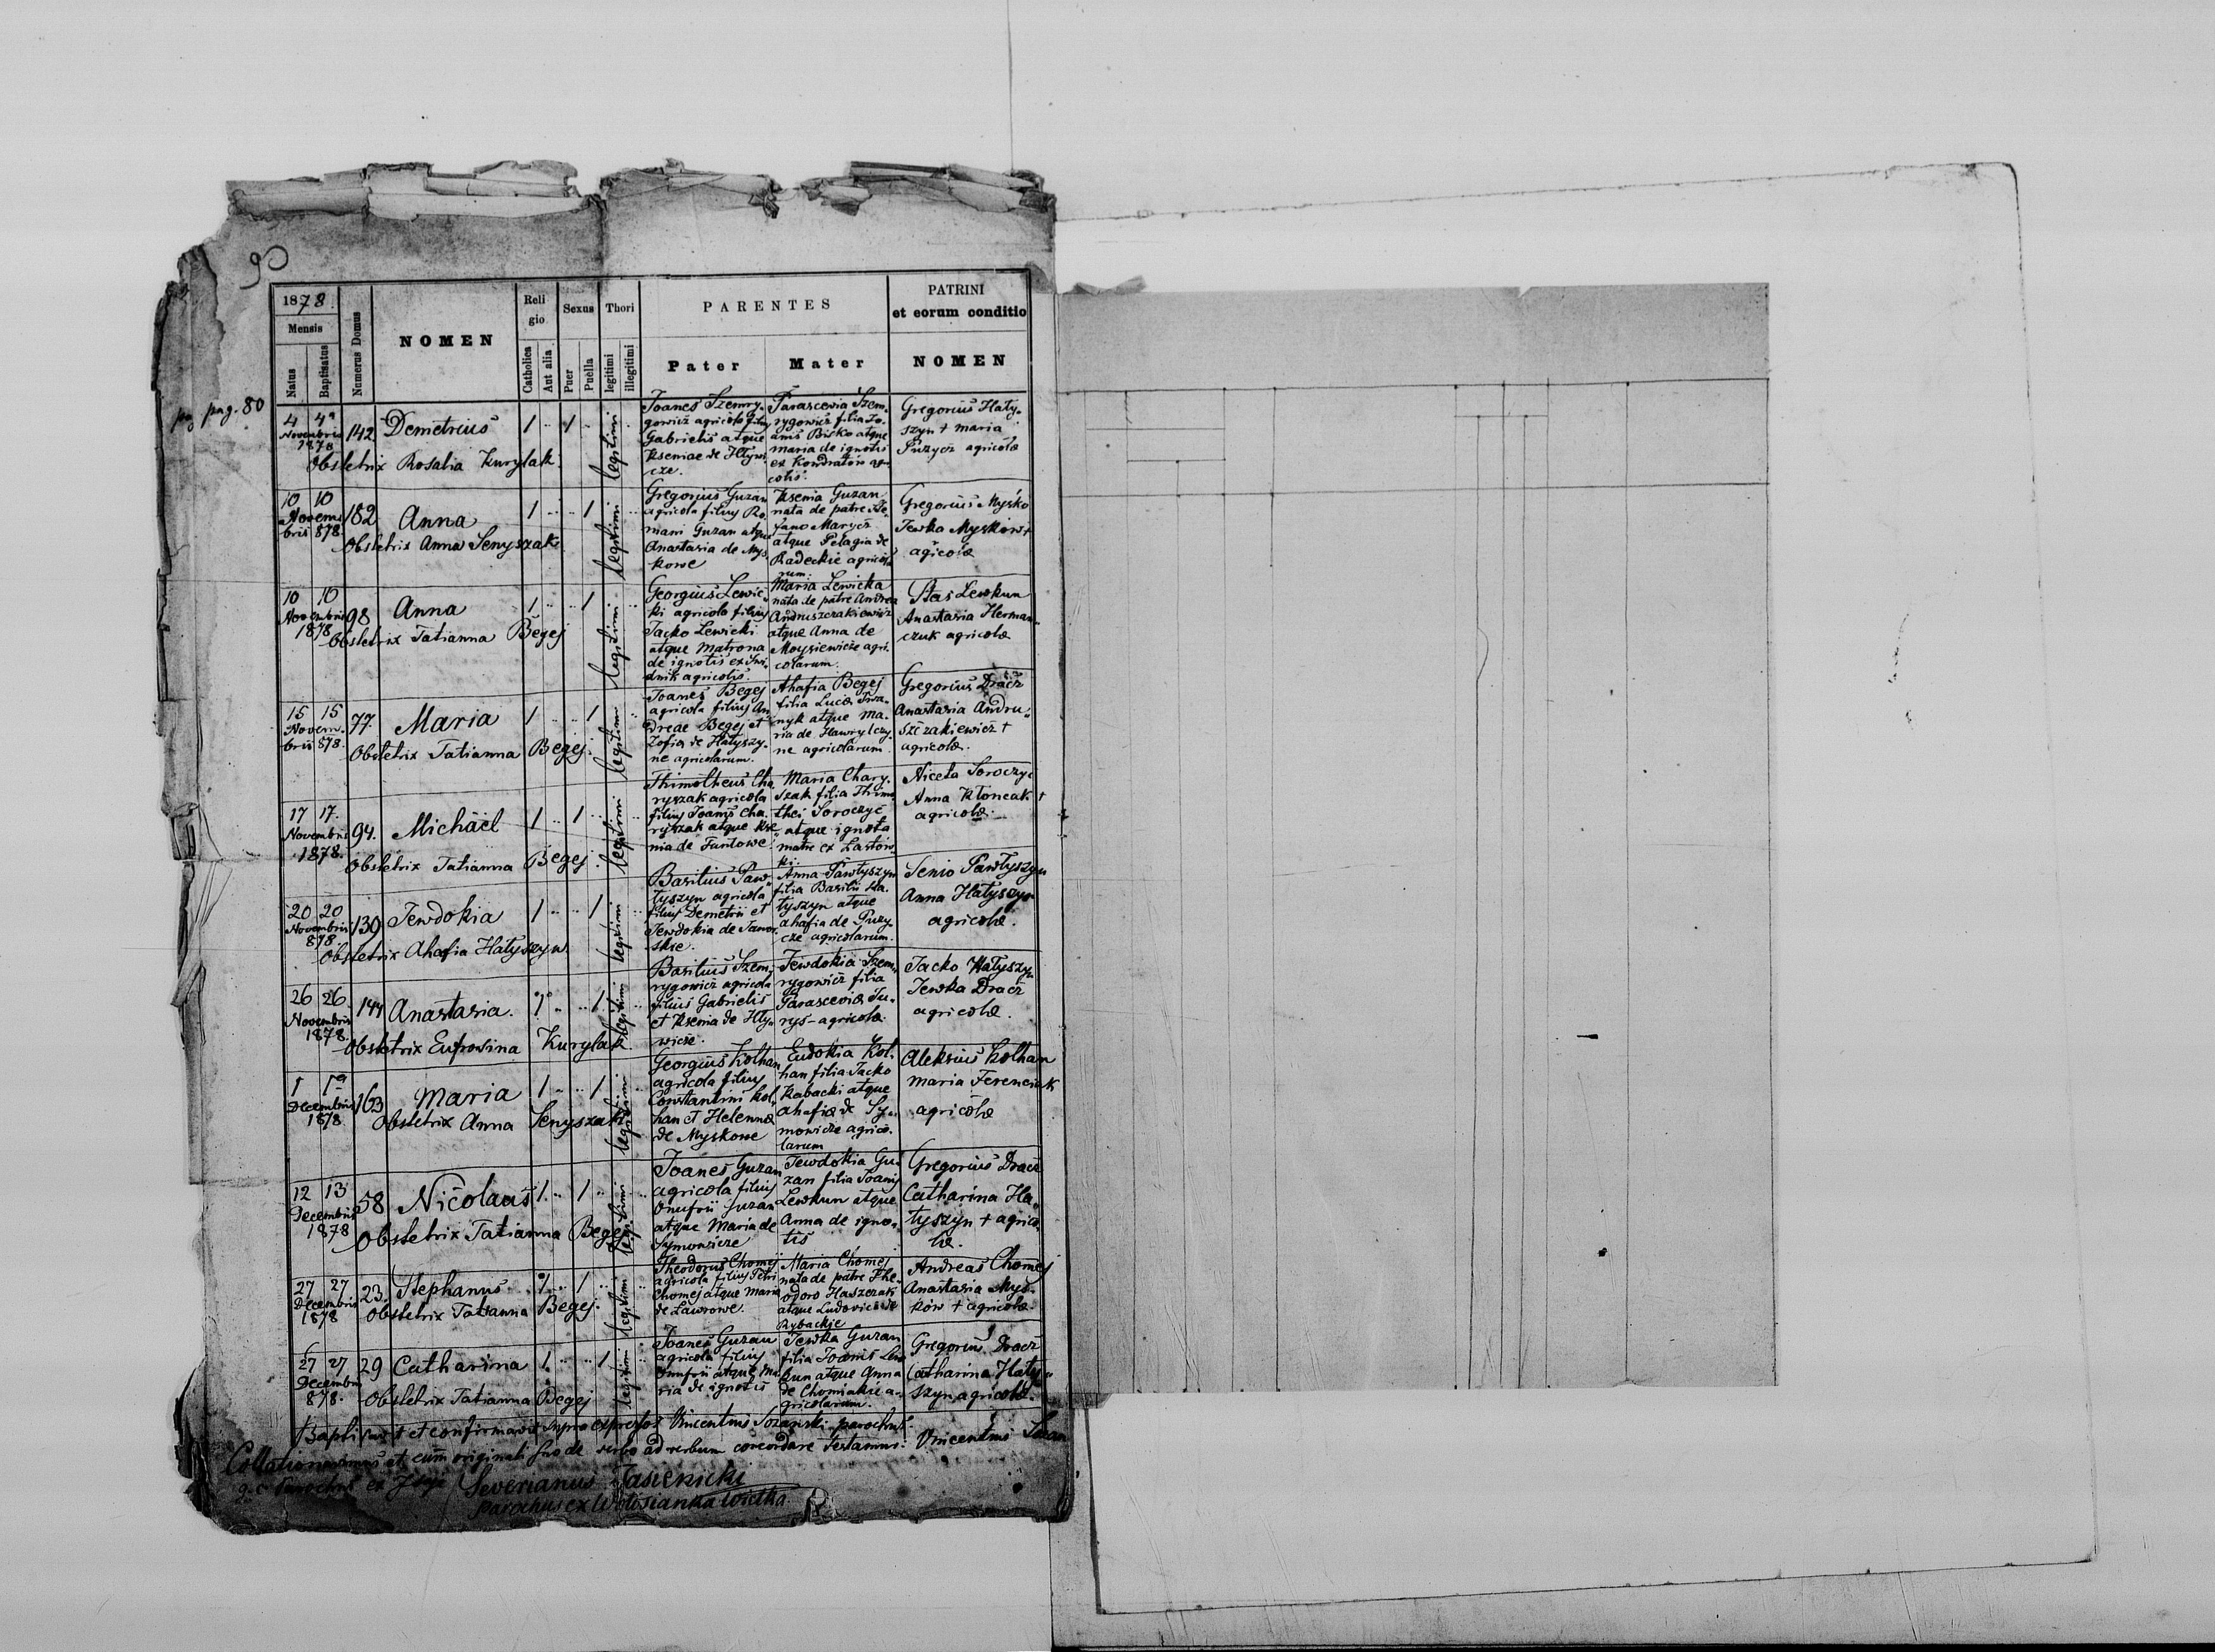 90
pag. 80
1878.
Mensis
Natus
Baptisatus
Numerus Domus
NOMEN
Religio
Catholica
Aut alia
Sexus
Puer
Puella
Thori
legitimi
illegitimi
PARENTES
Pater
Mater
PATRINI
et eorum conditio
NOMEN
4 4ª
Novembris
1878
142
Demetrius
1 .. 1
Obstetrix Rosalia Kurylak
legitimi
Joanes Szemry-
gowicz agricola filius
Gabrielis atque
Kseniae de Hływi-
cze.
Parascevia Szem-
rygowicz filia Jo-
anis Bisko atque
maria de ignotis
ex Kondratów agri-
colis.
Gregorius Haty-
szyn + maria
Puzycz agricolæ
10 10
Novem-
bris 878.
182
Anna
1 .. .. 1
Obstetrix Anna Senyszak
legitimi
Gregorius Guzan
agricola filius Ro-
mani Guzan atque
Anastasia de Mys-
kowe
Ksenia Guzan
nata de patre Ste-
fano Marycz
atque Pelagia de
Radeckie agricola-
rum.
Gregorius Myśko
Jewka Myskow +
agricolæ
10 10
Novembris
1878
98
Anna
1 .. .. 1
Obstetrix Tatianna Begej
legitimi
Georgius Lewic-
ki agricola filius
Jacko Lewicki
atque Matrona
de ignotis ex Swi-
dnik agricolis.
Maria Lewicka
nata de patre Andrea
Andruszczakiewicz
atque Anna de
Moysiewicze agri-
colarum.
Staś Lewkun
Anastasia Herman-
czuk agricolæ
15 15
Novem-
bris 878.
77.
Maria
1 .. .. 1
Obstetrix Tatianna Begej.
legitimi
Joanes Begej
agricola filius An-
dreae Begej et
Zofia de Hatyszy-
ne agricolarum.
Ahafia Begej
filia Lucæ Iwa-
nyk atque Ma-
ria de Hawrylczy-
ne agricolarum.
Gregorius Dracz
Anastasia Andru-
szczakiewicz +
agricolæ.
17 17.
Novembris
1878.
94.
Michäel
1 .. 1
Obstetrix Tatianna Begej.
legitimi
Thimotheus Cha-
ryszak agricola
filius Joanis Cha-
ryszak atque Kse-
nia de Fantowe.
Maria Chary-
szak filia Thimo-
thei Soroczyc
atque ignota
matre ex Lastów-
ki.
Niceta Soroczyc
Anna Kłoncak +
agricolæ.
20 20
Novembris
878
139
Jewdokia
1 .. .. 1
Obstetrix Ahafia Hatyszyn.
legitimi
Basilius Paw-
tyszyn agricola
filius Demetrii et
Jewdokia de Jawor-
skie.
Anna Pawtyszyn
filia Basilii Ha-
tyszyn atque
ahafia de Puzy-
cze agricolarum.
Senio Pawtyszyn
Anna Hatyszyn
agricolæ.
26 26
Novembris
1878.
144
Anastasia.
1 .. .. 1
Obstetrix Eufrosina Kurylak.
legitimi
Basilius Szem-
rygowicz agricola
filius Gabrielis
et Ksenia de Hły-
wicze.
Jewdokia Szem-
rygowicz filia
Parasceviæ Ju-
rys - agricolæ.
Jacko Hatyszyn
Jewka Dracz
agricolæ.
1 1ª
Decembris
1878.
163
Maria
1 .. .. 1
Obstetrix Anna Senyszak.
legitimi
Georgius Kolhan
agricola filius
Constantini Kol-
han et Helennæ
de Myskowe
Eudokia Kol-
han filia Jacko
Kabacki atque
ahafiæ de Sy-
mowicze agrico-
larum
Aleksius Kolhan
Maria Ferenciuk
agricolæ
12 13
Decembris
1878
58
Nicolaus
1 .. 1
Obstetrix Tatianna Begej
legitimi
Joanes Guzan
agricola filius
Onufrii Guzan
atque Maria de
Symowicze
Jewdokia Gu-
zan filia Joanis
Lewkun atque
Anna de igno-
tis
Gregorius Dracz
Catharina Ha-
tyszyn + agrico-
læ.
27 27
Decembris
1878
23.
Stephanus
1 .. 1
Obstetrix Tatianna Begej.
legitimi
Theodorus Chomej
agricola filius Petri
Chomej atque Maria
de Lawrowe.
Maria Chomej
nata de patre The-
odoro Haszczak
atque Ludovica de
Rybackie
Andreas Chomej
Anastasia Mys-
ków + agricolæ.
27 27
Decembris
878.
29
Catharina
1 .. .. 1
Obstetrix Tatianna Begej
legitimi
Joanes Guzan
agricola filius
Onufrii atque Ma-
ria de ignotis
Jewka Guzan
filia Joanis Lew-
kun atque Anna
de Chomiakie a-
gricolarum.
Gregorius Dracz
Catharina Haty-
szyn agricolæ.
Baptisavit et confirmavit supra expressos Vincentius Sozański parochus.
Collationavimus et cum originali suo de verbo ad verbum concordare testamur: Vincentius Sozan
Parochus ex
Severianus Jasienicki
parochus ex Wołosianka wielka